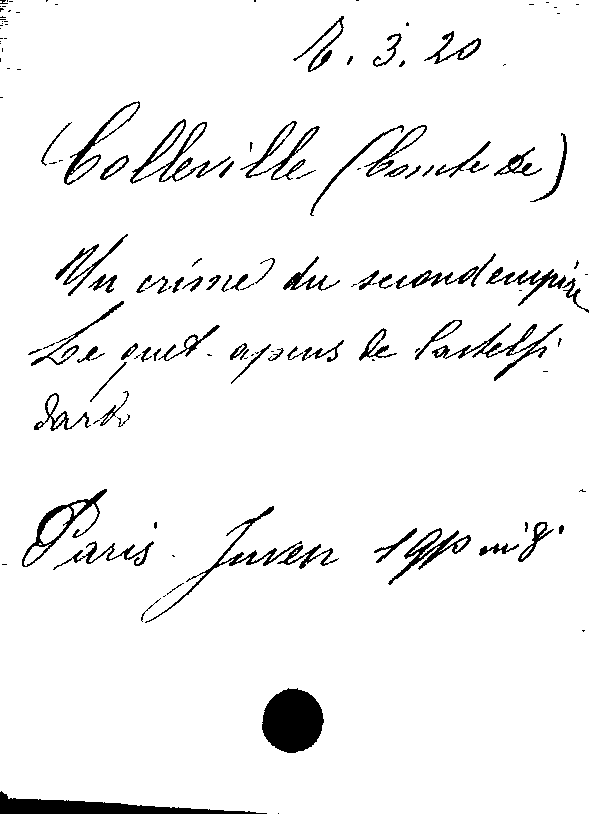 3.20
Colleville (Comte de)
Un crime du second empire
Le guet-apens de Castelfi
dardo
Paris. Juven 19 in 8°